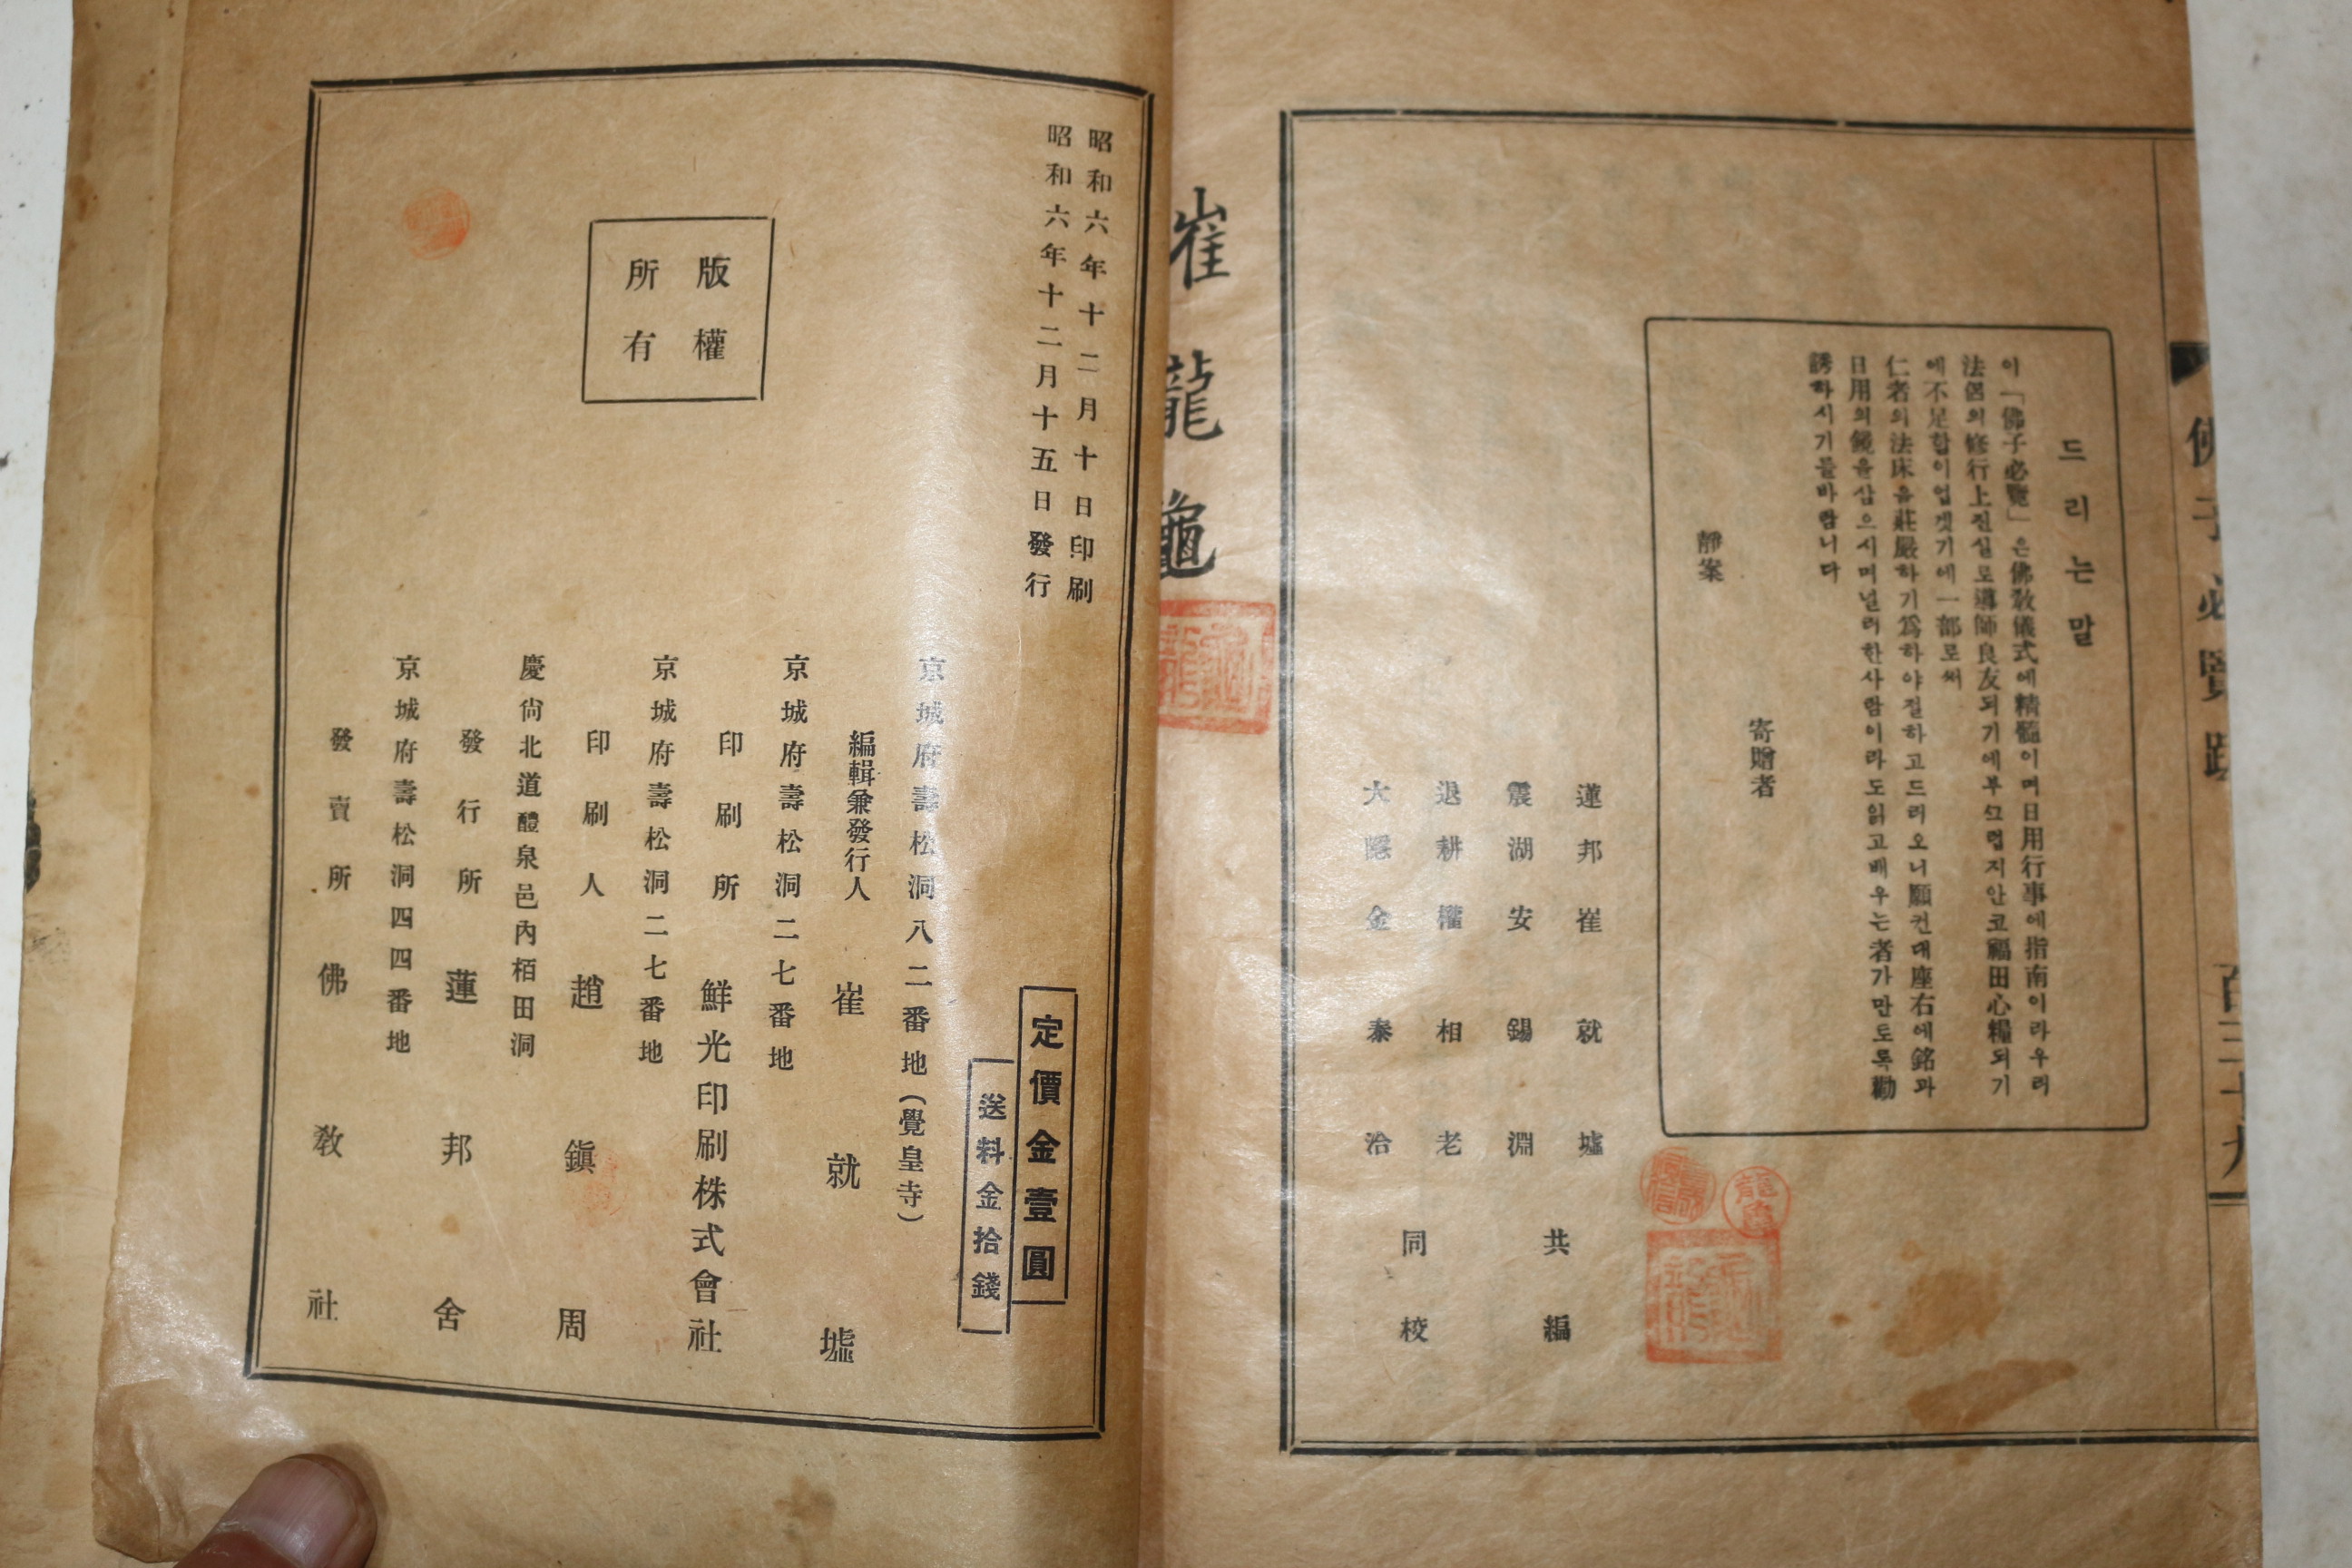 佛子必覽跋
百三十九
드리는말
이「佛子必覽」은佛敎儀式에精髓이며日用行事에指南이라우리
法侶의修行上진실로導師良友되기에부끄럽지안코福田心糧되기
에不足합이업겟기에一部로써
仁者의法床을莊嚴하기爲하야절하고드리오니願컨대座右에銘과
日用의鏡을삼으시며널리한사람이라도읽고배우는者가만토록勸
誘하시기를바람니다
寄贈者
靜案
蓮邦崔就墟
震湖安錫淵
共編
退耕權相老
大隱金泰洽
同校
崔龍龜
昭和六年十二月十日印刷
昭和六年十二月十五日發行
定價金壹圓
送料金拾錢
版權
所有
京城府壽松洞八二番地(覺皇寺)
編輯兼發行人 崔就墟
京城府壽松洞二七番地
印刷所 鮮光印刷株式會社
京城府壽松洞二七番地
印刷人 趙鎭周
慶尙北道醴泉邑內栢田洞
發行所 蓮邦舍
京城府壽松洞四四番地
發賣所 佛敎社